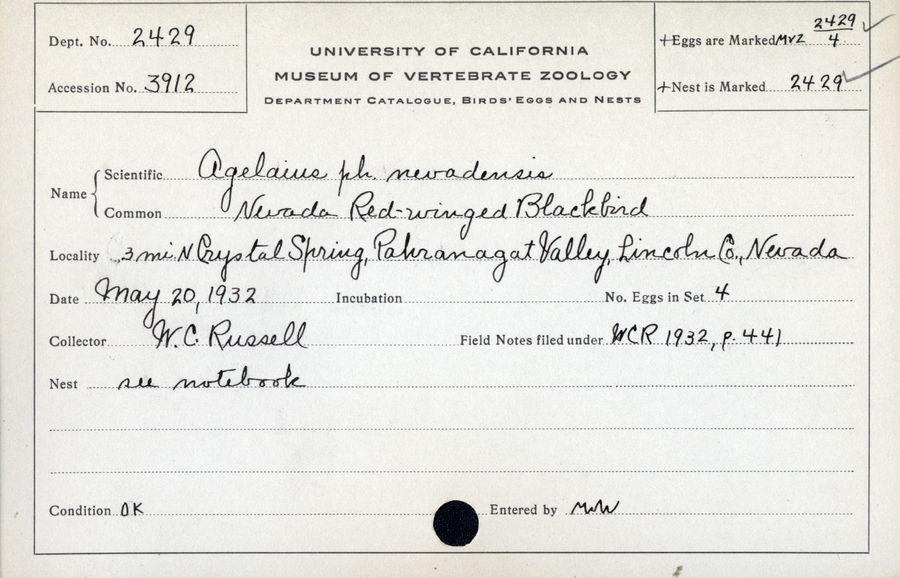 Dept. No. 2429
Accession No. 3912
UNIVERSITY OF CALIFORNIA
MUSEUM OF VERTEBRATE ZOOLOGY
DEPARTMENT CATALOGUE, BIRDS' EGGS AND NESTS
+Eggs are Marked MVZ 2429/4
+Nest is Marked 2429
Name
Scientific Agelaius ph. nevadensis
Common Nevada Red-winged Blackbird
Locality 3 mi. N Crystal Spring, Pahranagat Valley, Lincoln Co., Nevada
Date May 20, 1932 Incubation No. Eggs in Set 4
Collector W. C. Russell Field Notes filed under WCR 1932, p. 441
Nest see notebook
Condition OK Entered by